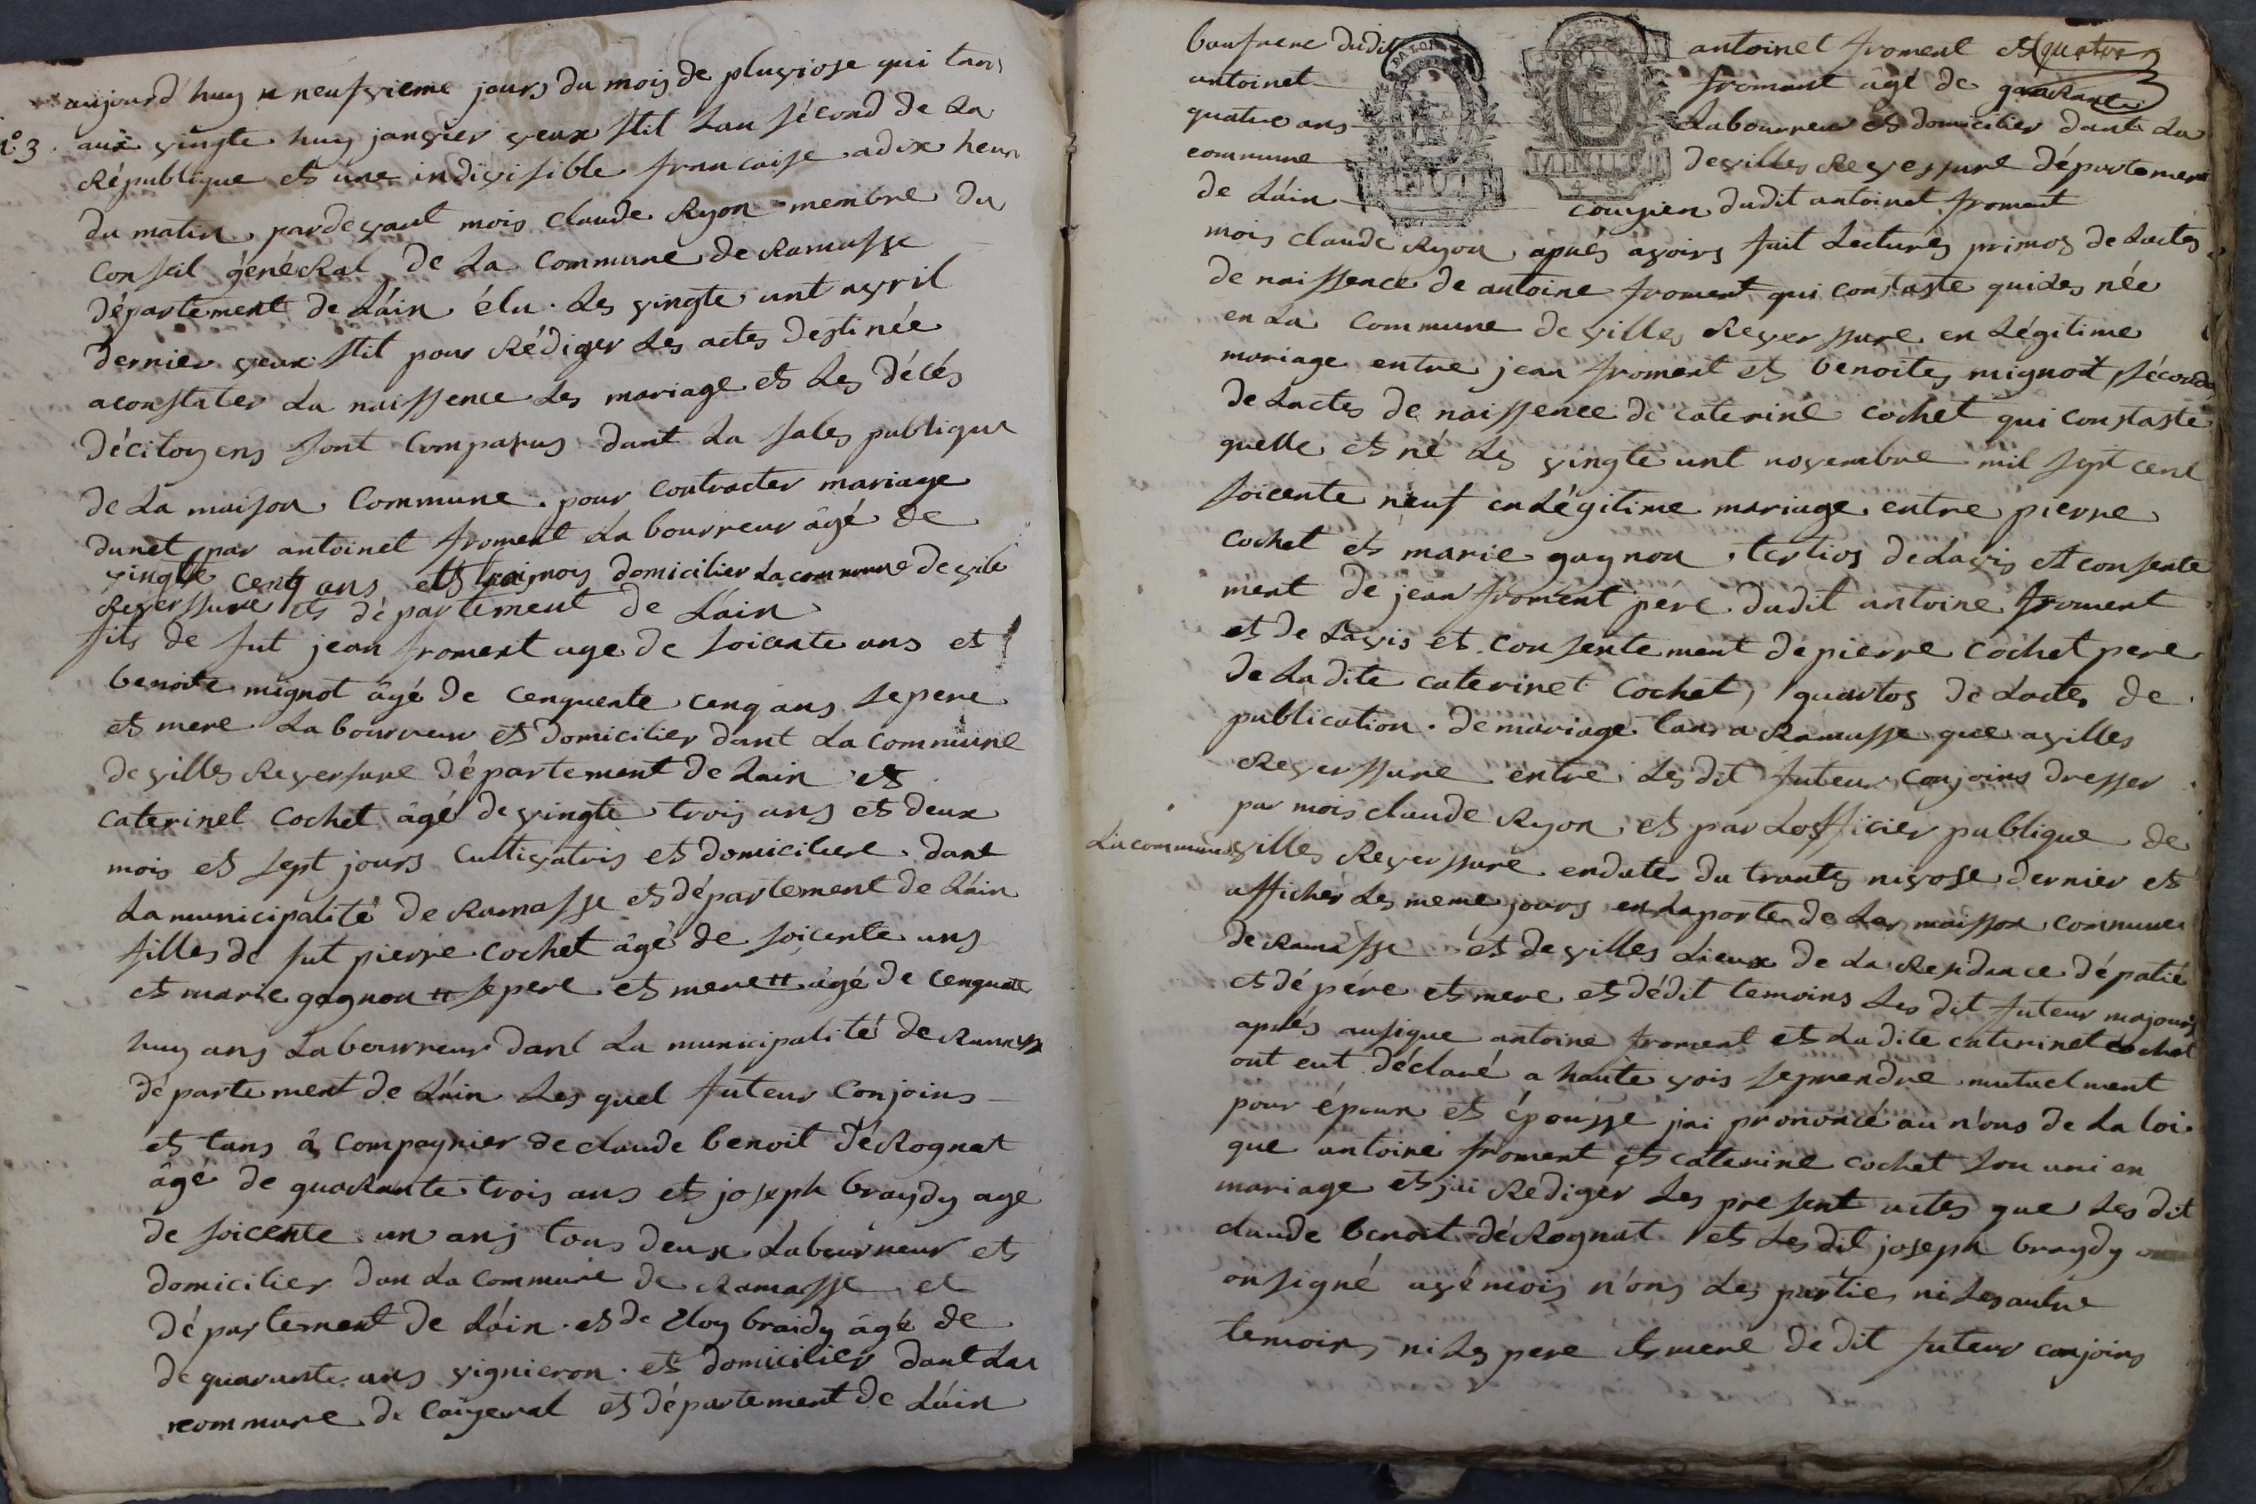 aujourd'huy neufvieme jours du mois de pluviose qui tans
n.º 3 . aux vingte huy janvier veux stil Lan sécond de La
République et une indivisible francaise a dix heur
du matin pardevant mois claude Ryon membre du
Conseil généRal de La Commune de Ramasse
département de Láin élu . Les vingte unt avril
dernier veux stil pour Rédiger Les actes destinée
aconstater La naissence Les mariage et Les décés
décitoyens sont Comparus dant La sales publique
de La maison Commune . pour contracter mariage
dunet par antoinet froment Labourreur âgé de
vingte cenq ans et mois domicilier La commune de vile
Reverssure et département de Láin
fils de fut jean froment age de soicente ans et
benoite mignot âgé de cenquente cenq ans Le pere
et mere Labourreur et domicilier dant La commune
de villes Reversure département de Lain et
caterinet cochet âgé de vingte trois ans et deux
mois et sept jours cultivatris et domiciliere . dant
La municipalité de Ramasse et département de Láin
filles de fut pierre cochet âgé de soicente ans
et marie gagnon # Le pere et mere # âgé de cenquate
huy ans Labourreur dant La municipalité de Ramasse
département de Láin Les quel futeur Conjoins
et tans â compagnier de claude benoit déRognat
âgé de quaRante trois ans et joseph braydy age
de soicente un ans tous deux Labourreur et
domicilier dan La commune de Ramasse et
département de Láin . et de Eloy braidy âgé de
de quarante ans vignieron . et domicilier dant La
commune de Cayeral et département de Láin
baufrere dudit antoinet froment et quatre
antoinet froment agé de quaRante
quatre ans Labourreur et domicilier dant La
commune de villes Reverssure département
de Láin couzien dudit antoinet froment
mois claude Ryon aprés avoirs fait Lectures primos de Lactes
de naissence de antoine froment qui constaste quiles née
en La commune de villes Reverssure en Légitime
mariage entre jean froment et benoites mignot sécondos
de Lactes de naissence de caterine cochet qui constaste
quelle et né Les vingte unt novembre mil sept cent
soicente neuf en Légitime mariage entre pierre
cochet et marie gagnon . tertios de Lavis et consente
ment de jean froment pére dudit antoine froment
et de Lavis et consentement de pierre cochet pere
de Ladite caterinet Cochet , quartos de Lactes de
publication . de mariage tans a Ramasse que avilles
Reverssure entre Les dit futeur conjoins dresser
par mois claude Ryon et par Lofficier publique de
La commune villes Reverssure en date du trantes nivose dernier et
afficher Les meme jours en La porte de La maisson commune
de Ramasse et de villes Lieux de La Resdance dépatié
et dé pére et mere et dédit temoins Les dit futeur majours
aprés ausique antoine froment et La dite caterinet cochet
ont eut déclaré a haute vois se prendre mutuelment
pour époux et épousse jai prononcé au n'ons de La loi
que antoine froment et caterine cochet son uni en
mariage et jai Rediger Les present actes que Les dit
claude benoit déRognat et Les dit joseph braydy
on signé avé mois n'ons Les parties ni Les autre
temoins ni Les pere et mere de dit futeur conjoins